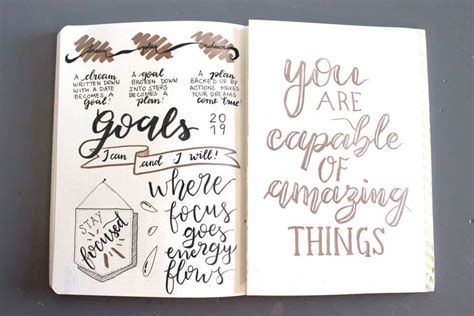 dream
plan
achieve
A dream
WRITTEN DOWN
WITH A DATE
BECOMES A
goal!
A goal
BROKEN DOWN
INTO STEPS
BECOMES A
plan!
A plan
BACKED UP BY
ACTIONS MAKES
YOUR DREAMS
come true!
goals
20
19
I can and I will!
STAY
focused
where
focus
goes
energy
flows
you
ARE
capable
OF
amazing
THINGS